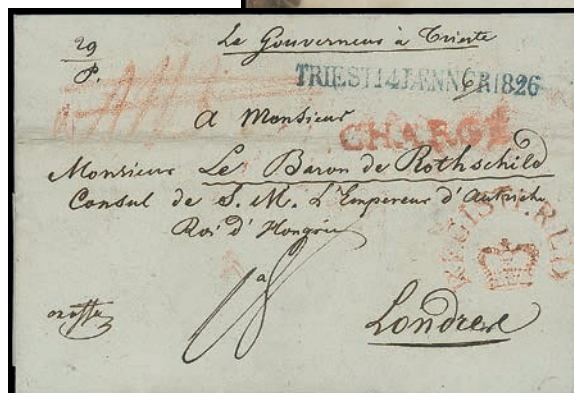 29
P.
Le Gouverneur à Trieste
TRIEST 14 JÆNNER 1826
A Monsieur
CHARGÉ
Monsieur Le Baron de Rothschild
Consul de S. M. L'Empereur d'Autriche
Roi d'Hongrie
REGISTERED
Londres